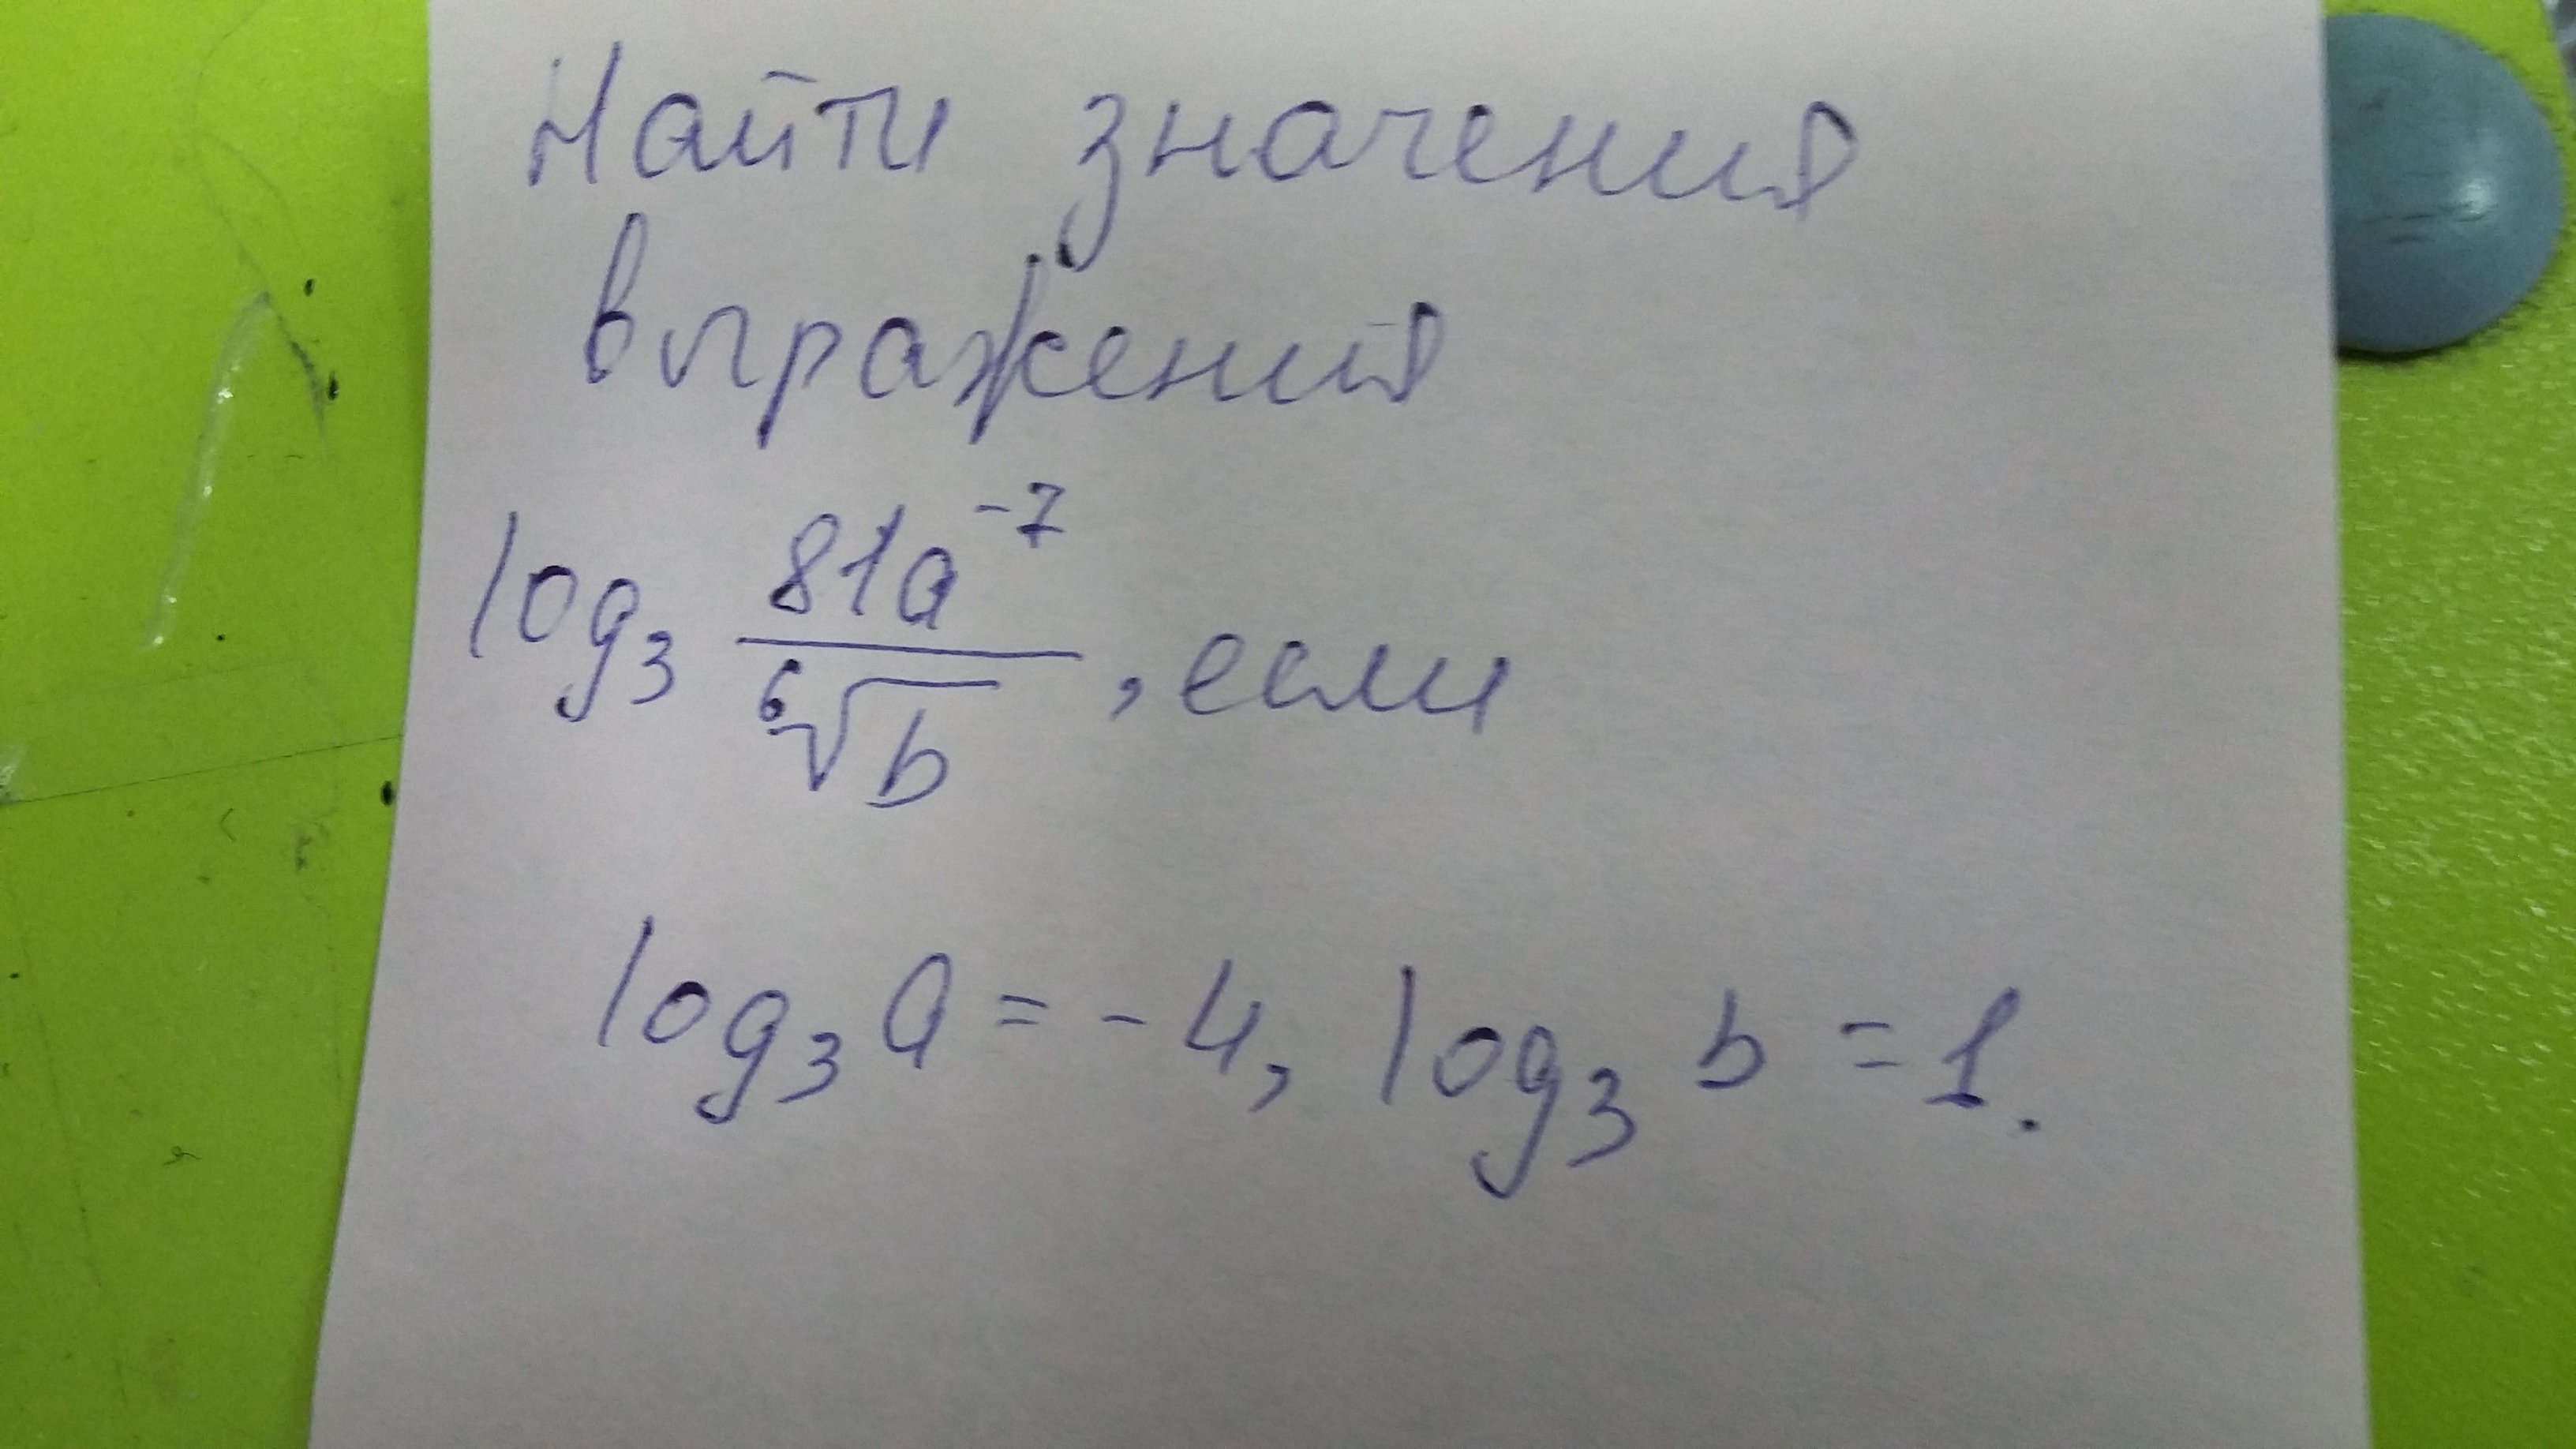 Найти значения
выражения
log₃ 81a⁻⁷ / ⁶√b , если
log₃ a = -4, log₃ b = 1.